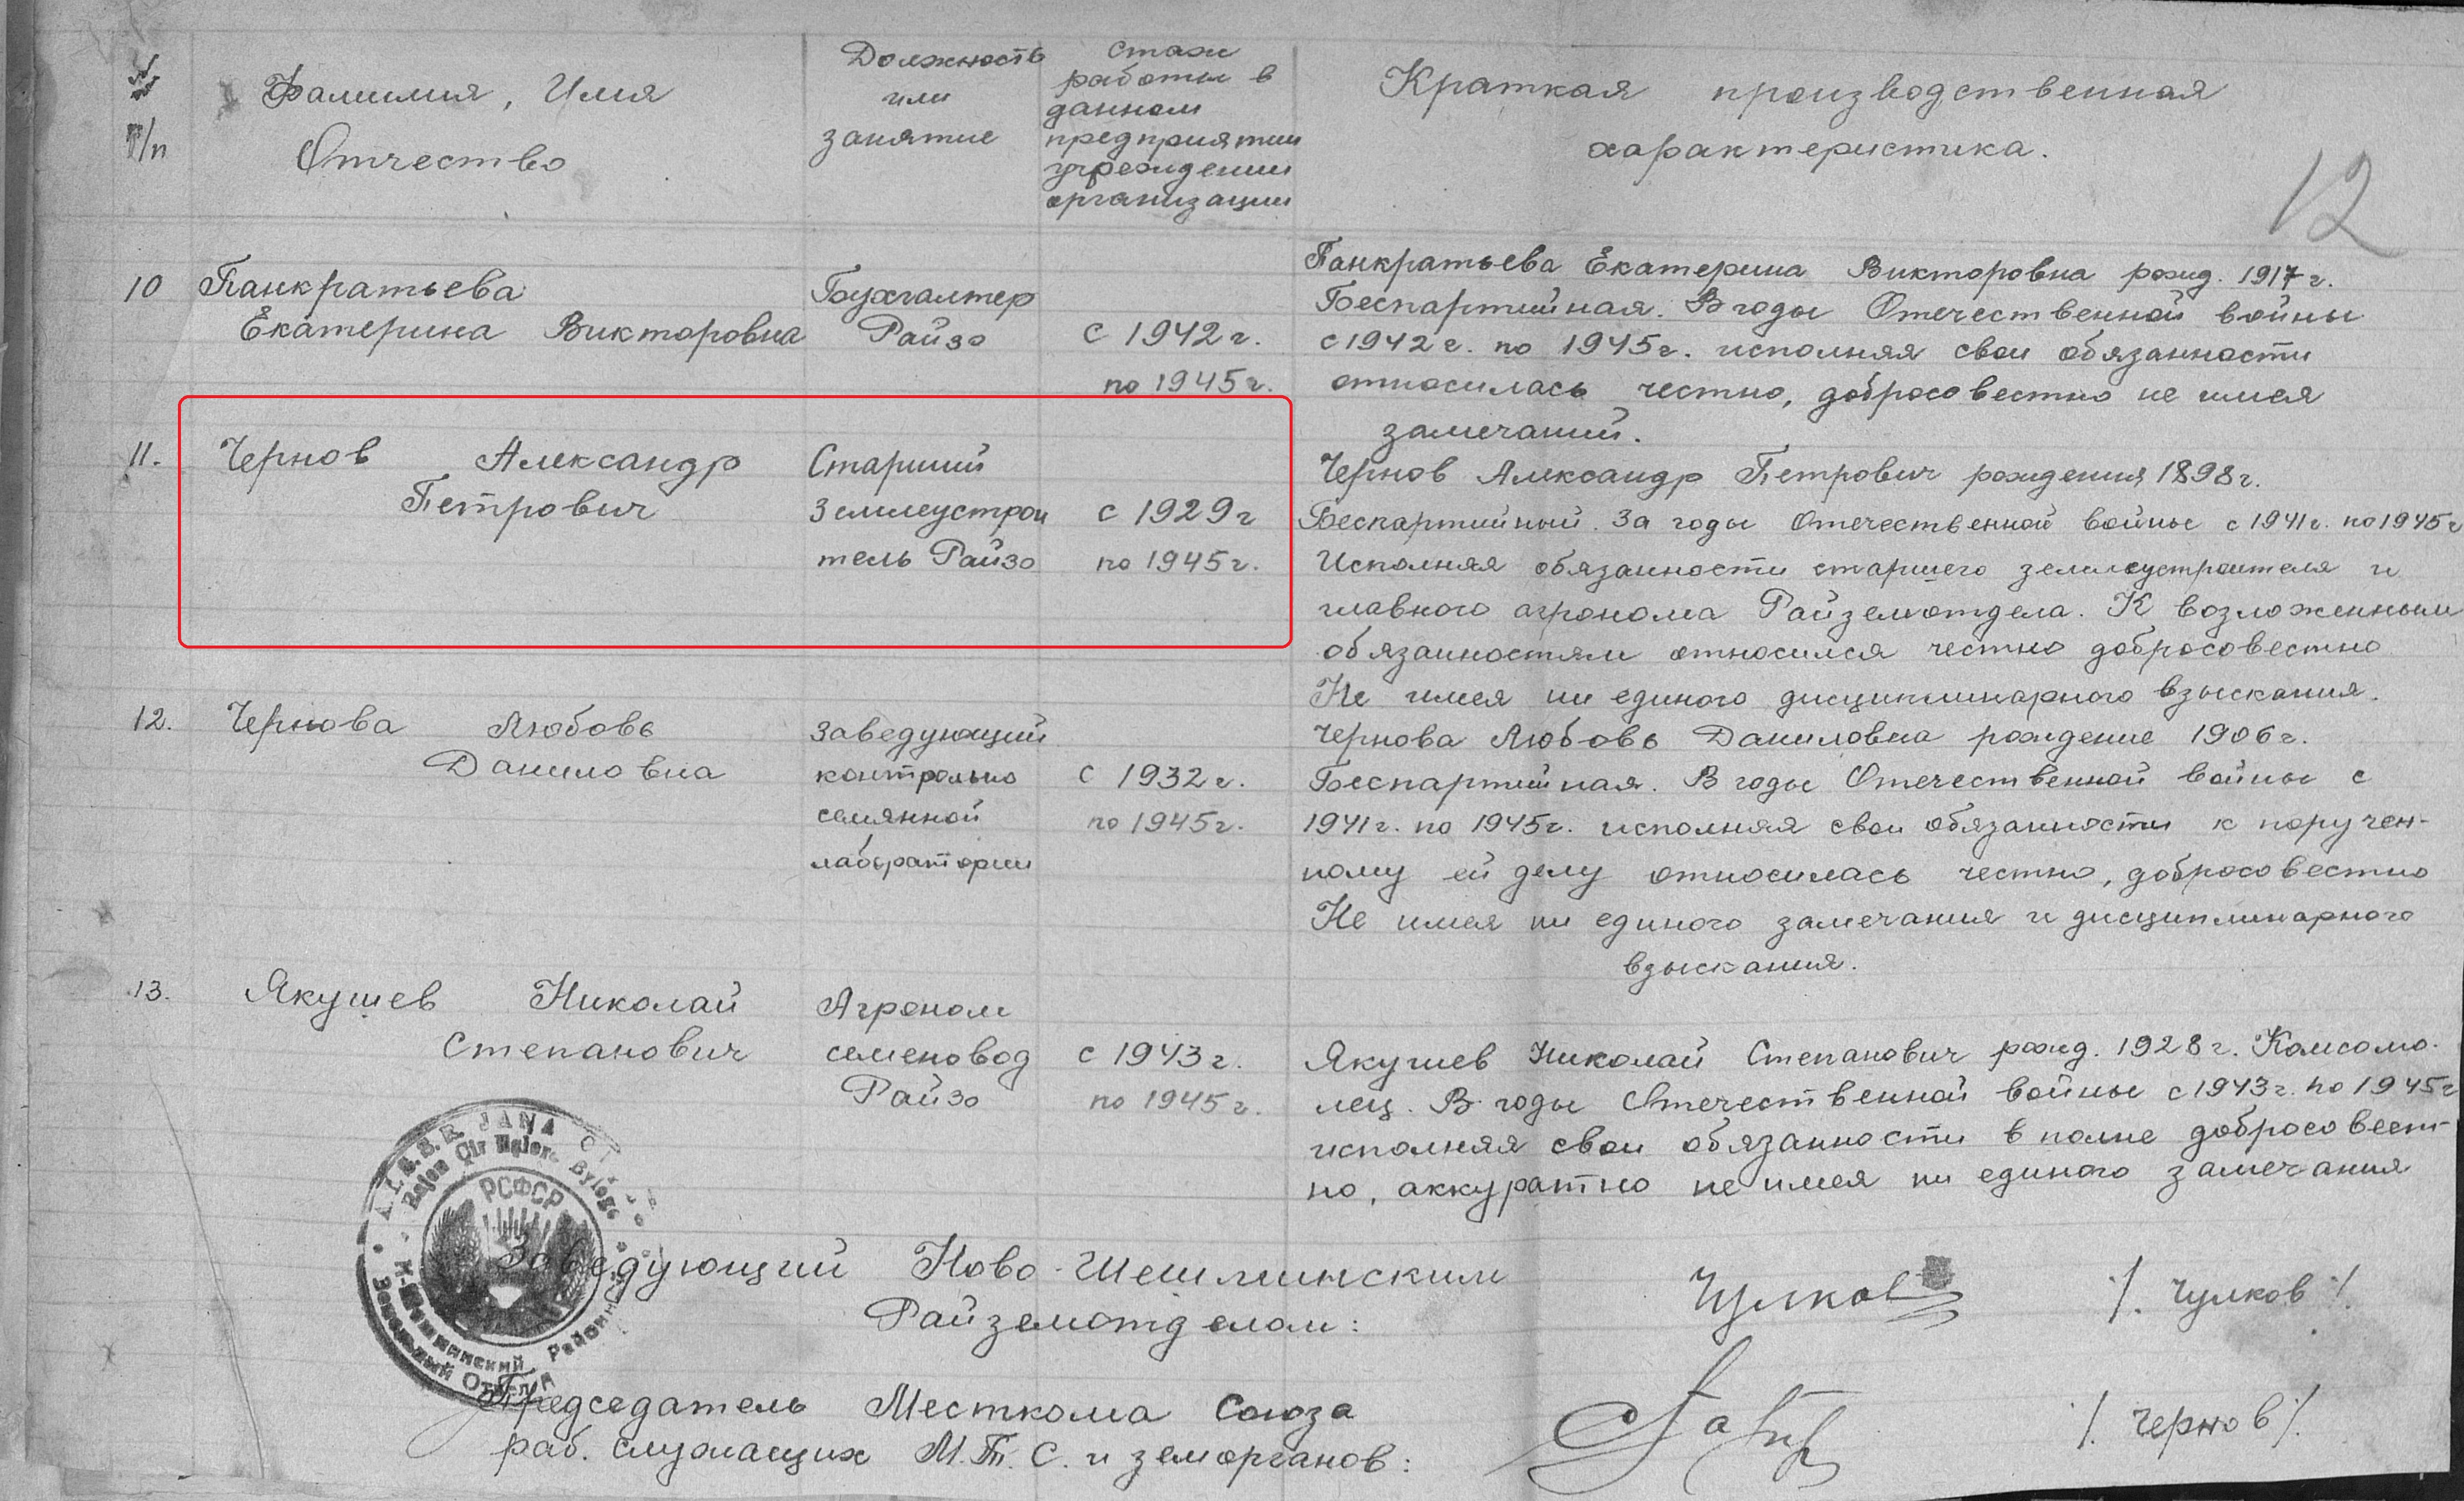 №№ п/п
Фамилия, Имя
Отчество
Должность
или
занятие
Стаж
работы в
данном
предприятии
учреждении
организации
Краткая производственная
характеристика.
12
10 Панкратьева
Екатерина Викторовна
Бухгалтер
Райзо
с 1942 г.
по 1945 г.
Панкратьева Екатерина Викторовна рожд. 1917 г.
Беспартийная. В годы Отечественной войны
с 1942 г. по 1945 г. исполняя свои обязанности
относилась честно, добросовестно не имея
замечаний.
11. Чернов Александр
Петрович
Старший
Землеустрои
тель Райзо
с 1929 г
по 1945 г.
Чернов Александр Петрович рождения 1898 г.
Беспартийный. За годы Отечественной войны с 1941 г. по 1945 г
Исполняя обязанности старшего землеустроителя и
главного агронома Райземотдела. К возложенным
обязанностям относился честно добросовестно
Не имея ни единого дисциплинарного взыскания.
12. Чернова Любовь
Даниловна
Заведующий
контрольно
семянной
лаборатории
с 1932 г.
по 1945 г.
Чернова Любовь Даниловна рождение 1906 г.
Беспартийная. В годы Отечественной войны с
1941 г. по 1945 г. исполняя свои обязанности к поручен-
ному ей делу относилась честно, добросовестно
Не имея ни единого замечания и дисциплинарного
взыскания.
13. Якушев Николай
Степанович
Агроном
семеновод
Райзо
с 1943 г.
по 1945 г.
Якушев Николай Степанович рожд. 1928 г. Комсомо-
лец. В годы Отечественной войны с 1943 г. по 1945 г
исполняя свои обязанности в полне добросовест-
но, аккуратно не имея ни единого замечания
РСФСР
Н-Шешминский Районный
Земельный Отдел
Заведующий Ново-Шешминским
Райземотделом:
Чулков
/. Чулков /.
Председатель Месткома Союза
раб. служащих М.Т.С. и земорганов:
/. Чернов /.